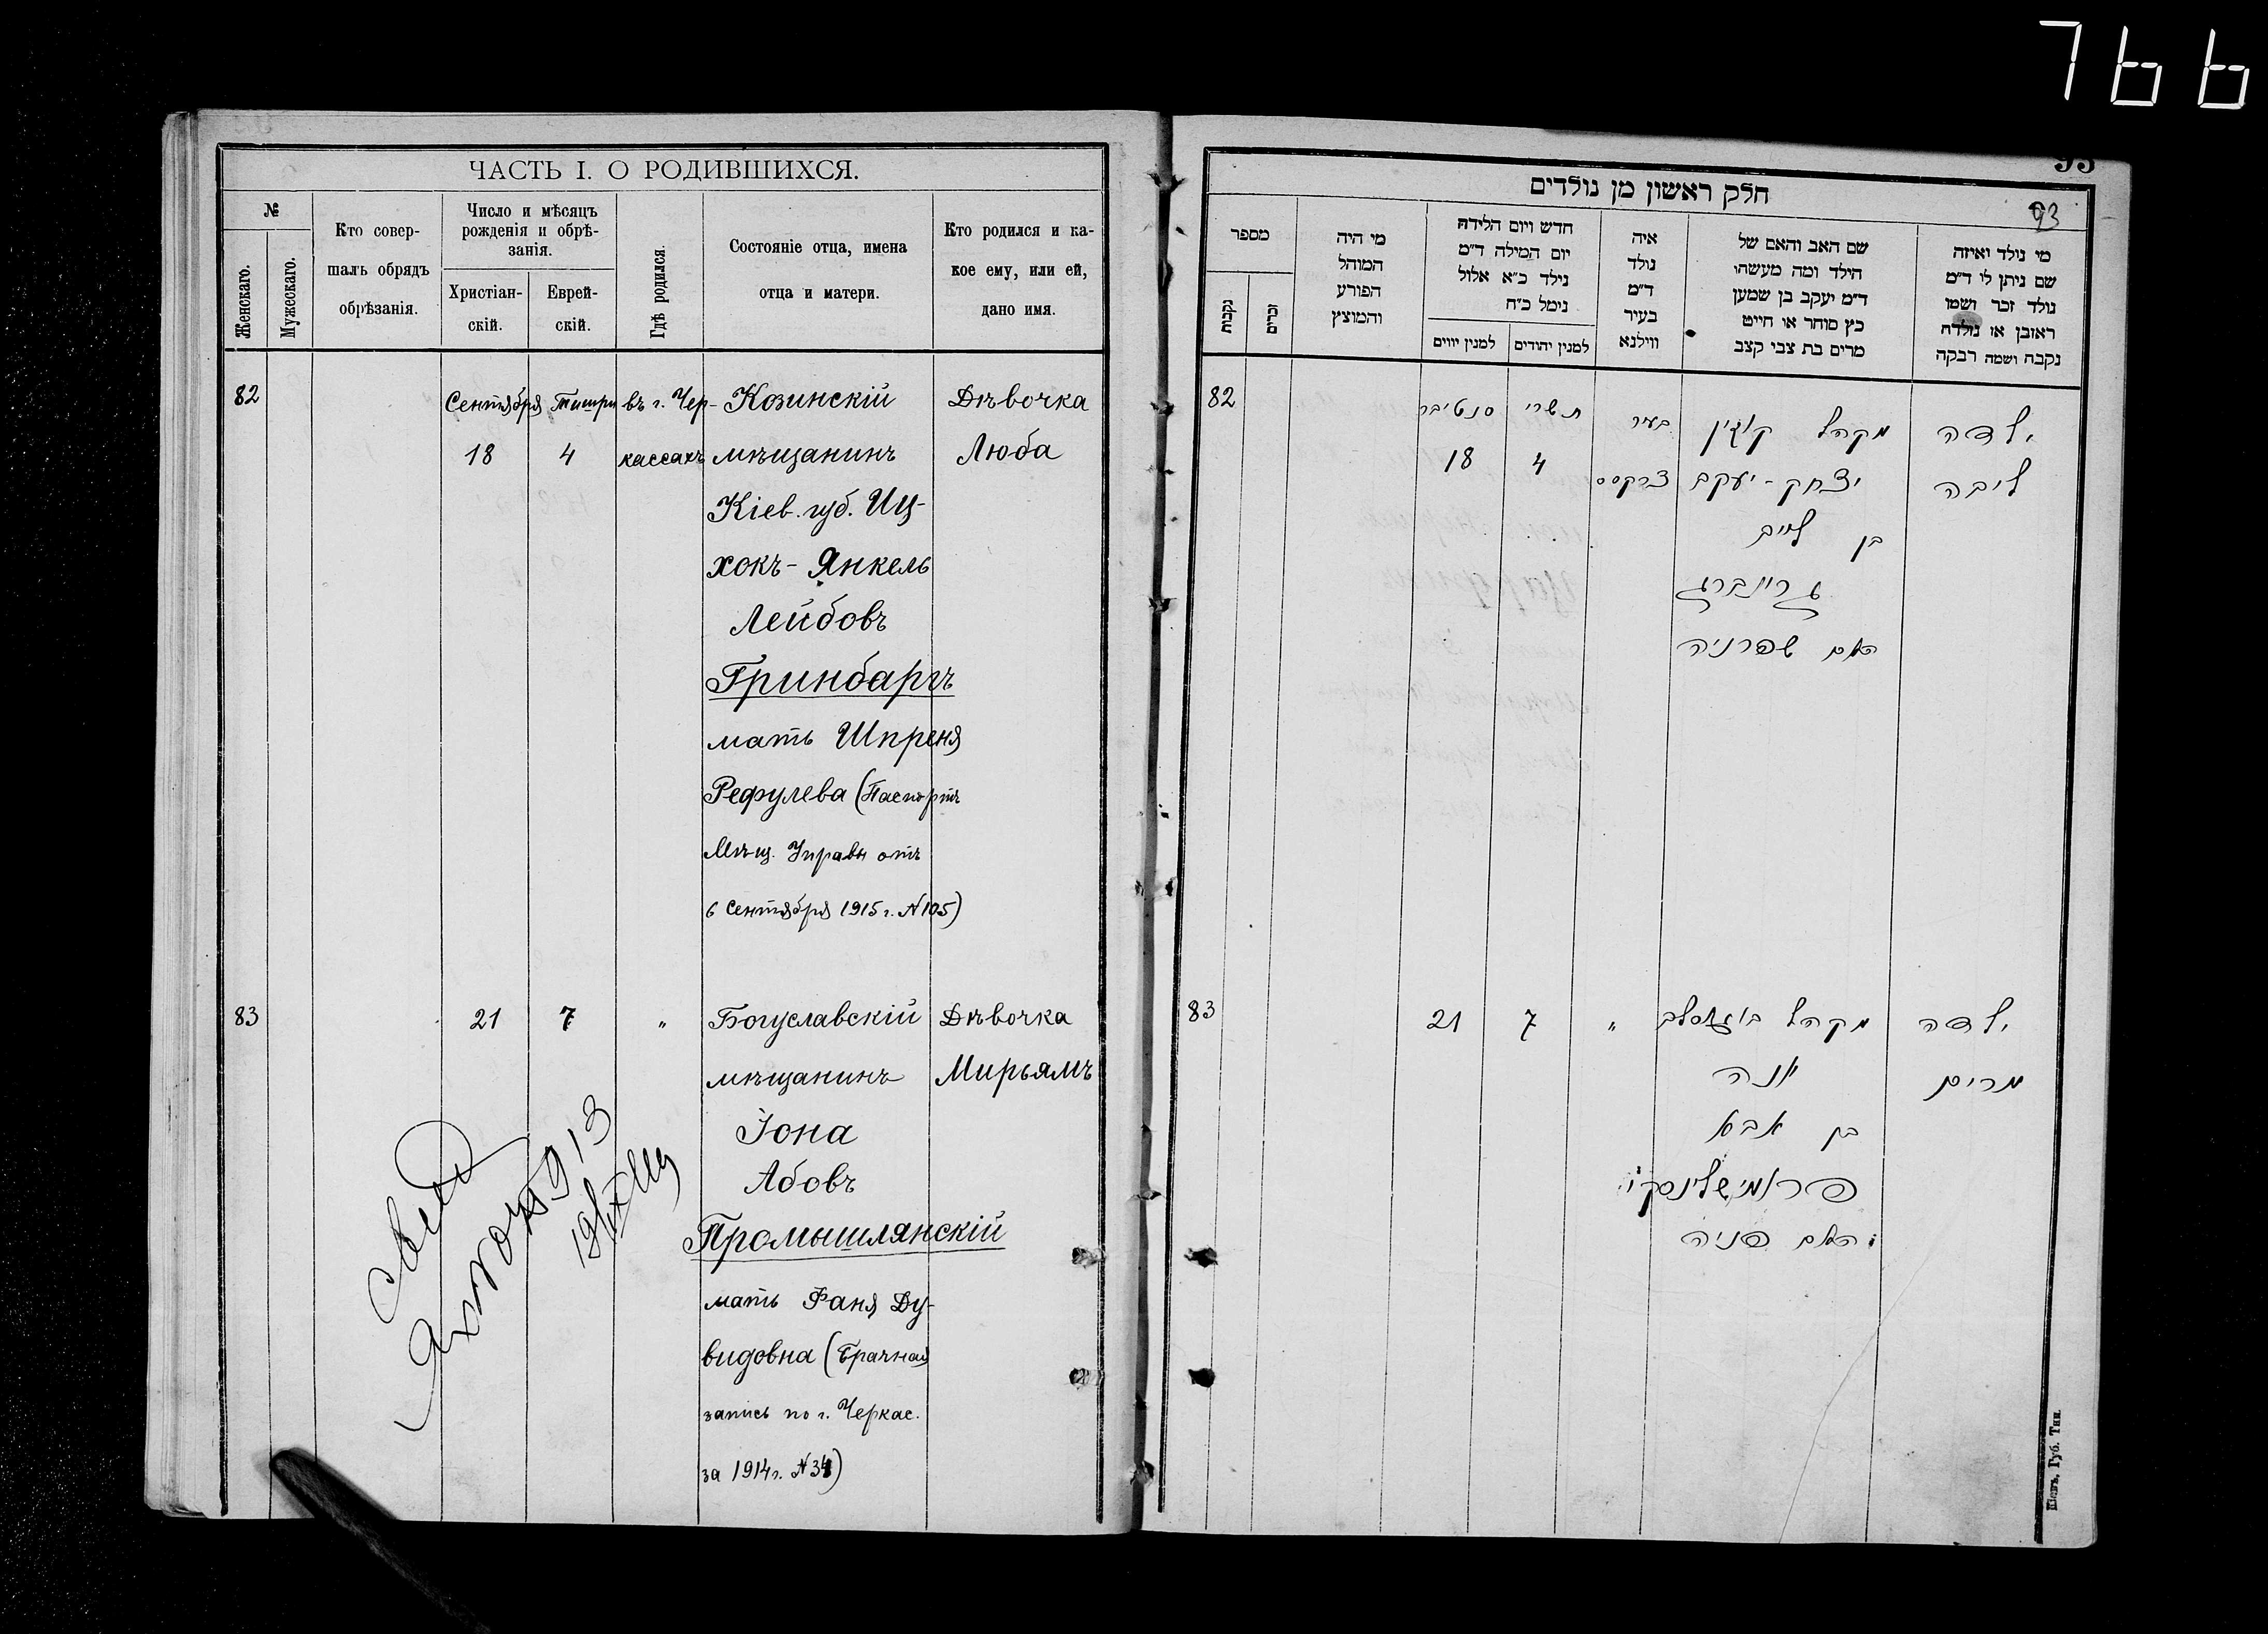 766
ЧАСТЬ I. О РОДИВШИХСЯ.
№
Женскаго.
Мужескаго.
Кто совер-
шалъ обрядъ
обрѣзанія.
Число и мѣсяцъ
рожденія и обрѣ-
занія.
Христіан-
скій.
Еврей-
скій.
Гдѣ родился.
Состояніе отца, имена
отца и матери.
Кто родился и ка-
кое ему, или ей,
дано имя.
82 Сентября Тишри въ г. Чер- Козинскій Дѣвочка
18 4 кассахъ мѣщанинъ Люба
Кіев. губ. Иц-
хокъ-Янкель
Лейбовъ
Гринбаргъ
мать Шпреня
Рефулева (Паспортъ
Мѣщ. Управы отъ
6 Сентября 1915 г. №105)
83 21 7 " Богуславскій Дѣвочка
мѣщанинъ Мирьямъ
Іона
Абовъ
Промышлянскій
мать Фаня Ду-
видовна (Брачная
запись по г. Черкас.
за 1914 г. №34)
93
חלק ראשון מן נולדים
93
מספר
נקבות
זכרים
מי היה
המוהל
הפורע
והמוצץ
חדש ויום הלידה
יום המילה ד״מ
נילד כ״א אלול
נימל כ״ח
למנין יווים
למנין יהודים
איה
נולד
ד״מ
בעיר
ווילנא
שם האב והאם של
הילד ומה מעשהו
ד״מ יעקב בן שמען
כץ סוחר או חייט
מרים בת צבי קצב
מי נולד ואיזה
שם ניתן לו ד״מ
נולד זכר ושמו
ראובן או נולדה
נקבה ושמה רבקה
82 סנטיבר תשרי בעיר מקהל קוזין ילדה
18 4 צרקסס יצחק-יעקב ליבה
בן לייב
גרינברג
האם שפרניה
83 21 7 " מקהל בוגוסלב ילדה
יונה מרים
בן אבא
פראמישלינסקי
האם פניה
Кіевъ, Губ. Тип.